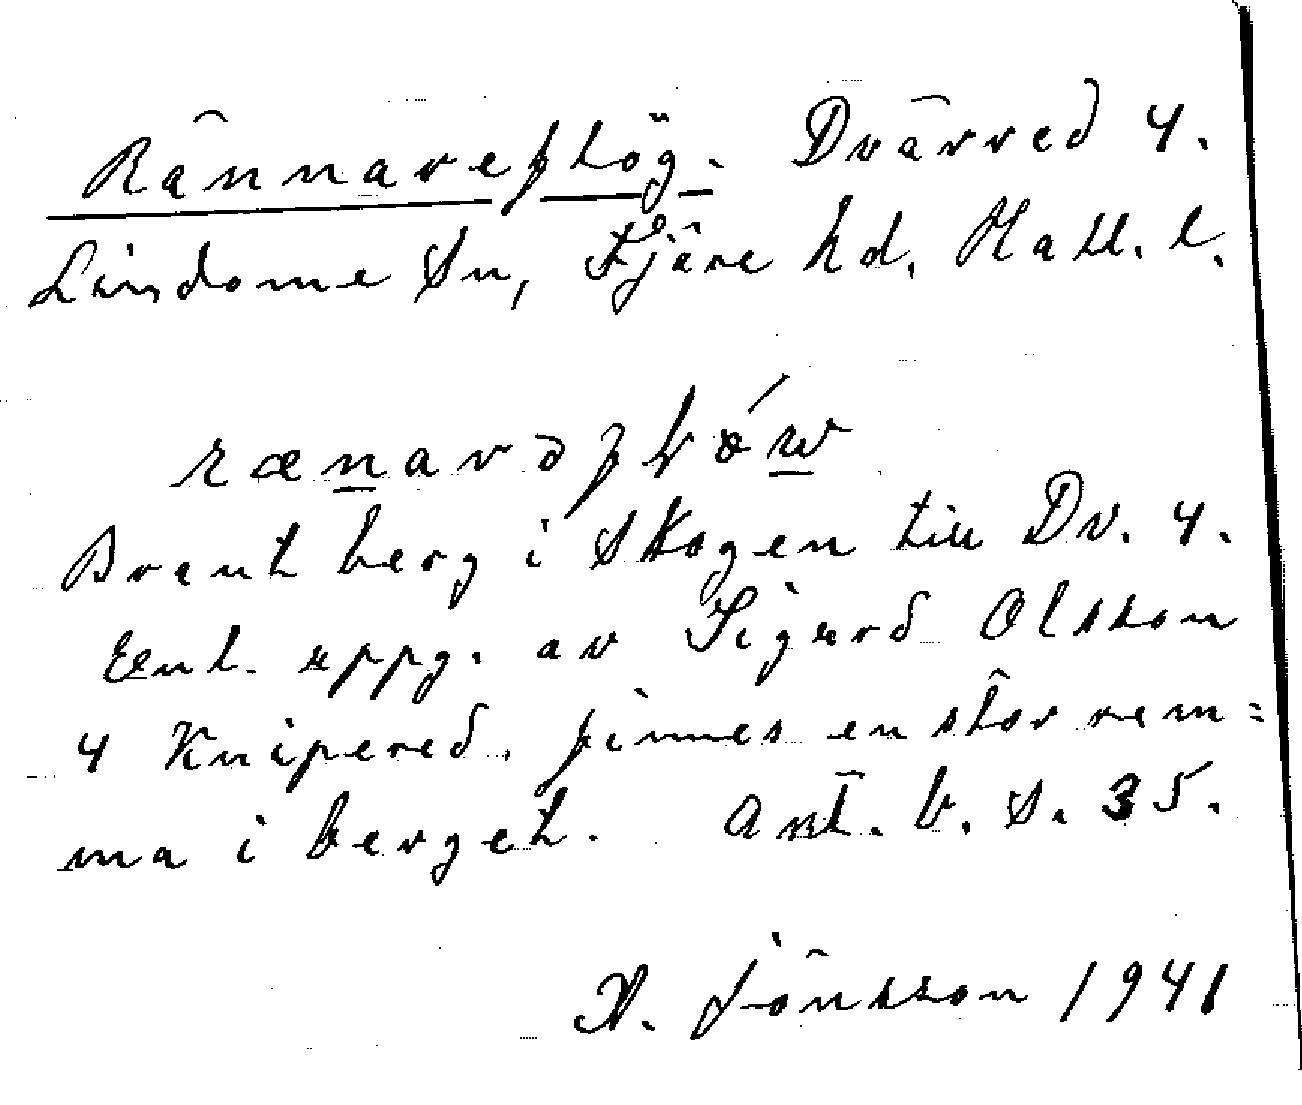 Rännareflög. Dvärred 4.
Lindome Sn, Fjäre hd. Hall. l.
Brant berg i skogen till Dv. 4.
Enl. uppg. av Sigurd Olsson
4 Knipered. finnes en stor rem=
ma i berget. Ant. b. s. 35.
A. Jönsson 1941